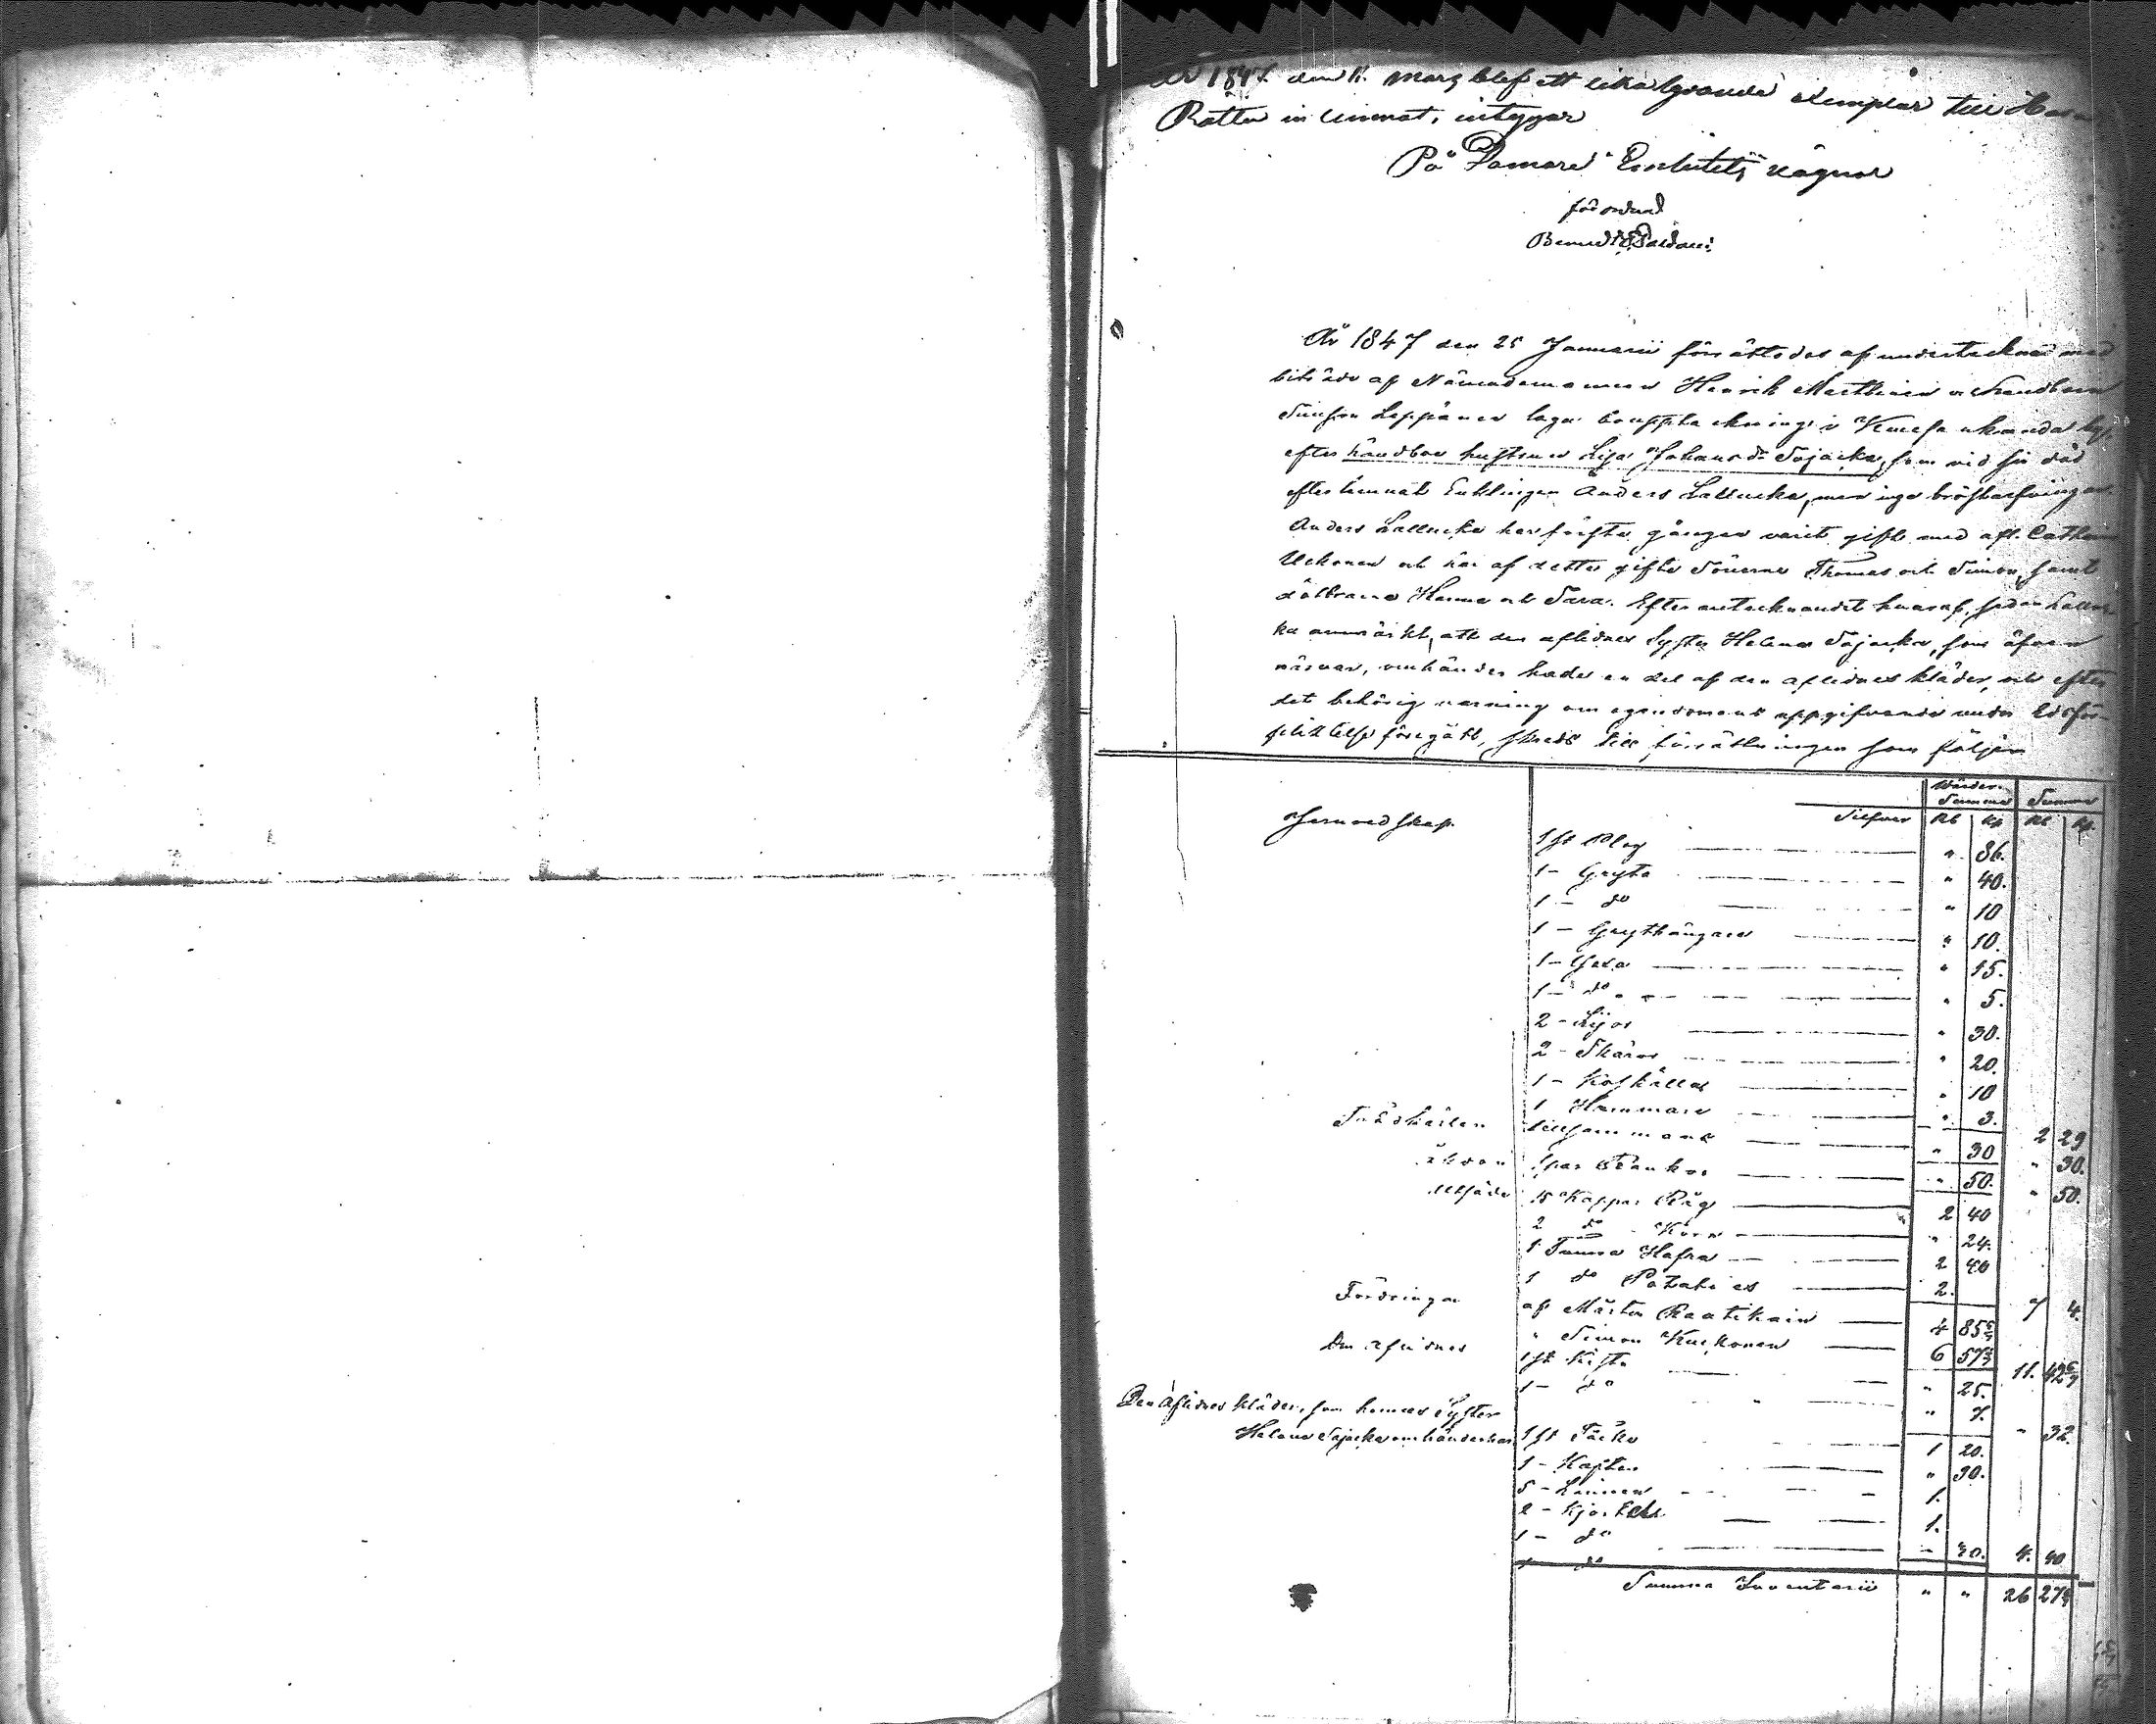 År 1847 den 11 Marz blef ett lika lydande exemplar till Härads
Rätten in lemnat, intygar
På Domare Embetets vägnar
förordnad
År 1847 den 25 Januarii förrättades af undertecknad med
biträde af Nämndemannen Henrik Marttinen och Landboen
Simon Leppänen laga bouppteckning i by
efter Landboe hustrun Lisa Johansdr Sojacka, som vid sin död
efterlemnat Enklingen Anders Lallucka, men inga bröstarfvingar.
Anders Lallucka har första gången varit gift med afl. Catharina
Uckonen och har af detta gifte Sönerne Thomas och Simon, samt
döttrarne Hanna och Sara. Efter antecknandet haraf, sedan Lalluc-
ka anmärkt, att den aflidnes Syster Helena Sojacka, som äfven
närvar, omhänder hade en del af den aflidnes kläder, och efter
det behörig varning om egendomens uppgifvande under Edsför-
pliktelse föregått, skreds till förrättningen som följer
Värder.
Summa Summa
Silfver Rb Kp Rb Kp.
Jernredskap.
1 st Plog " 86.
1 - Gryta " 40.
1 - do " 10
1 - Grythängare " 10.
1 - Yxa " 15.
1 - do " 5.
2 - Lijor " 30.
2 - Skäror " 20.
1 - Koskälla " 10
1 Hammare " 3. 2 29
Trädkärlen tillsammans " 30 " 30.
Åkdon 1 par Stänkor " 50. " 50.
Utsäde 15 Kappar Råg 2 40
2 do Korn " 24.
1 Tunna Hafra 2 40
1 do Potatoes 2. 7 4.
Fordringar af Mårten Raatikain 4 85 5/7
" Simon Kuckonen 6 57 1/7 11. 42 6/7
Den aflidnes 1 st Kista " 25.
1 - do " 7. " 32.
Den aflidnes kläder, som hennes Syster
Helena Sojacka omhänderhar 1 st Täcke 1 20.
1 - Kaftan " 90.
5 - Linnen 1.
2 - Kjortlar 1.
1 - do " 30. 4. 40
1 do
Summa Inventarii " " 26 27 6/7